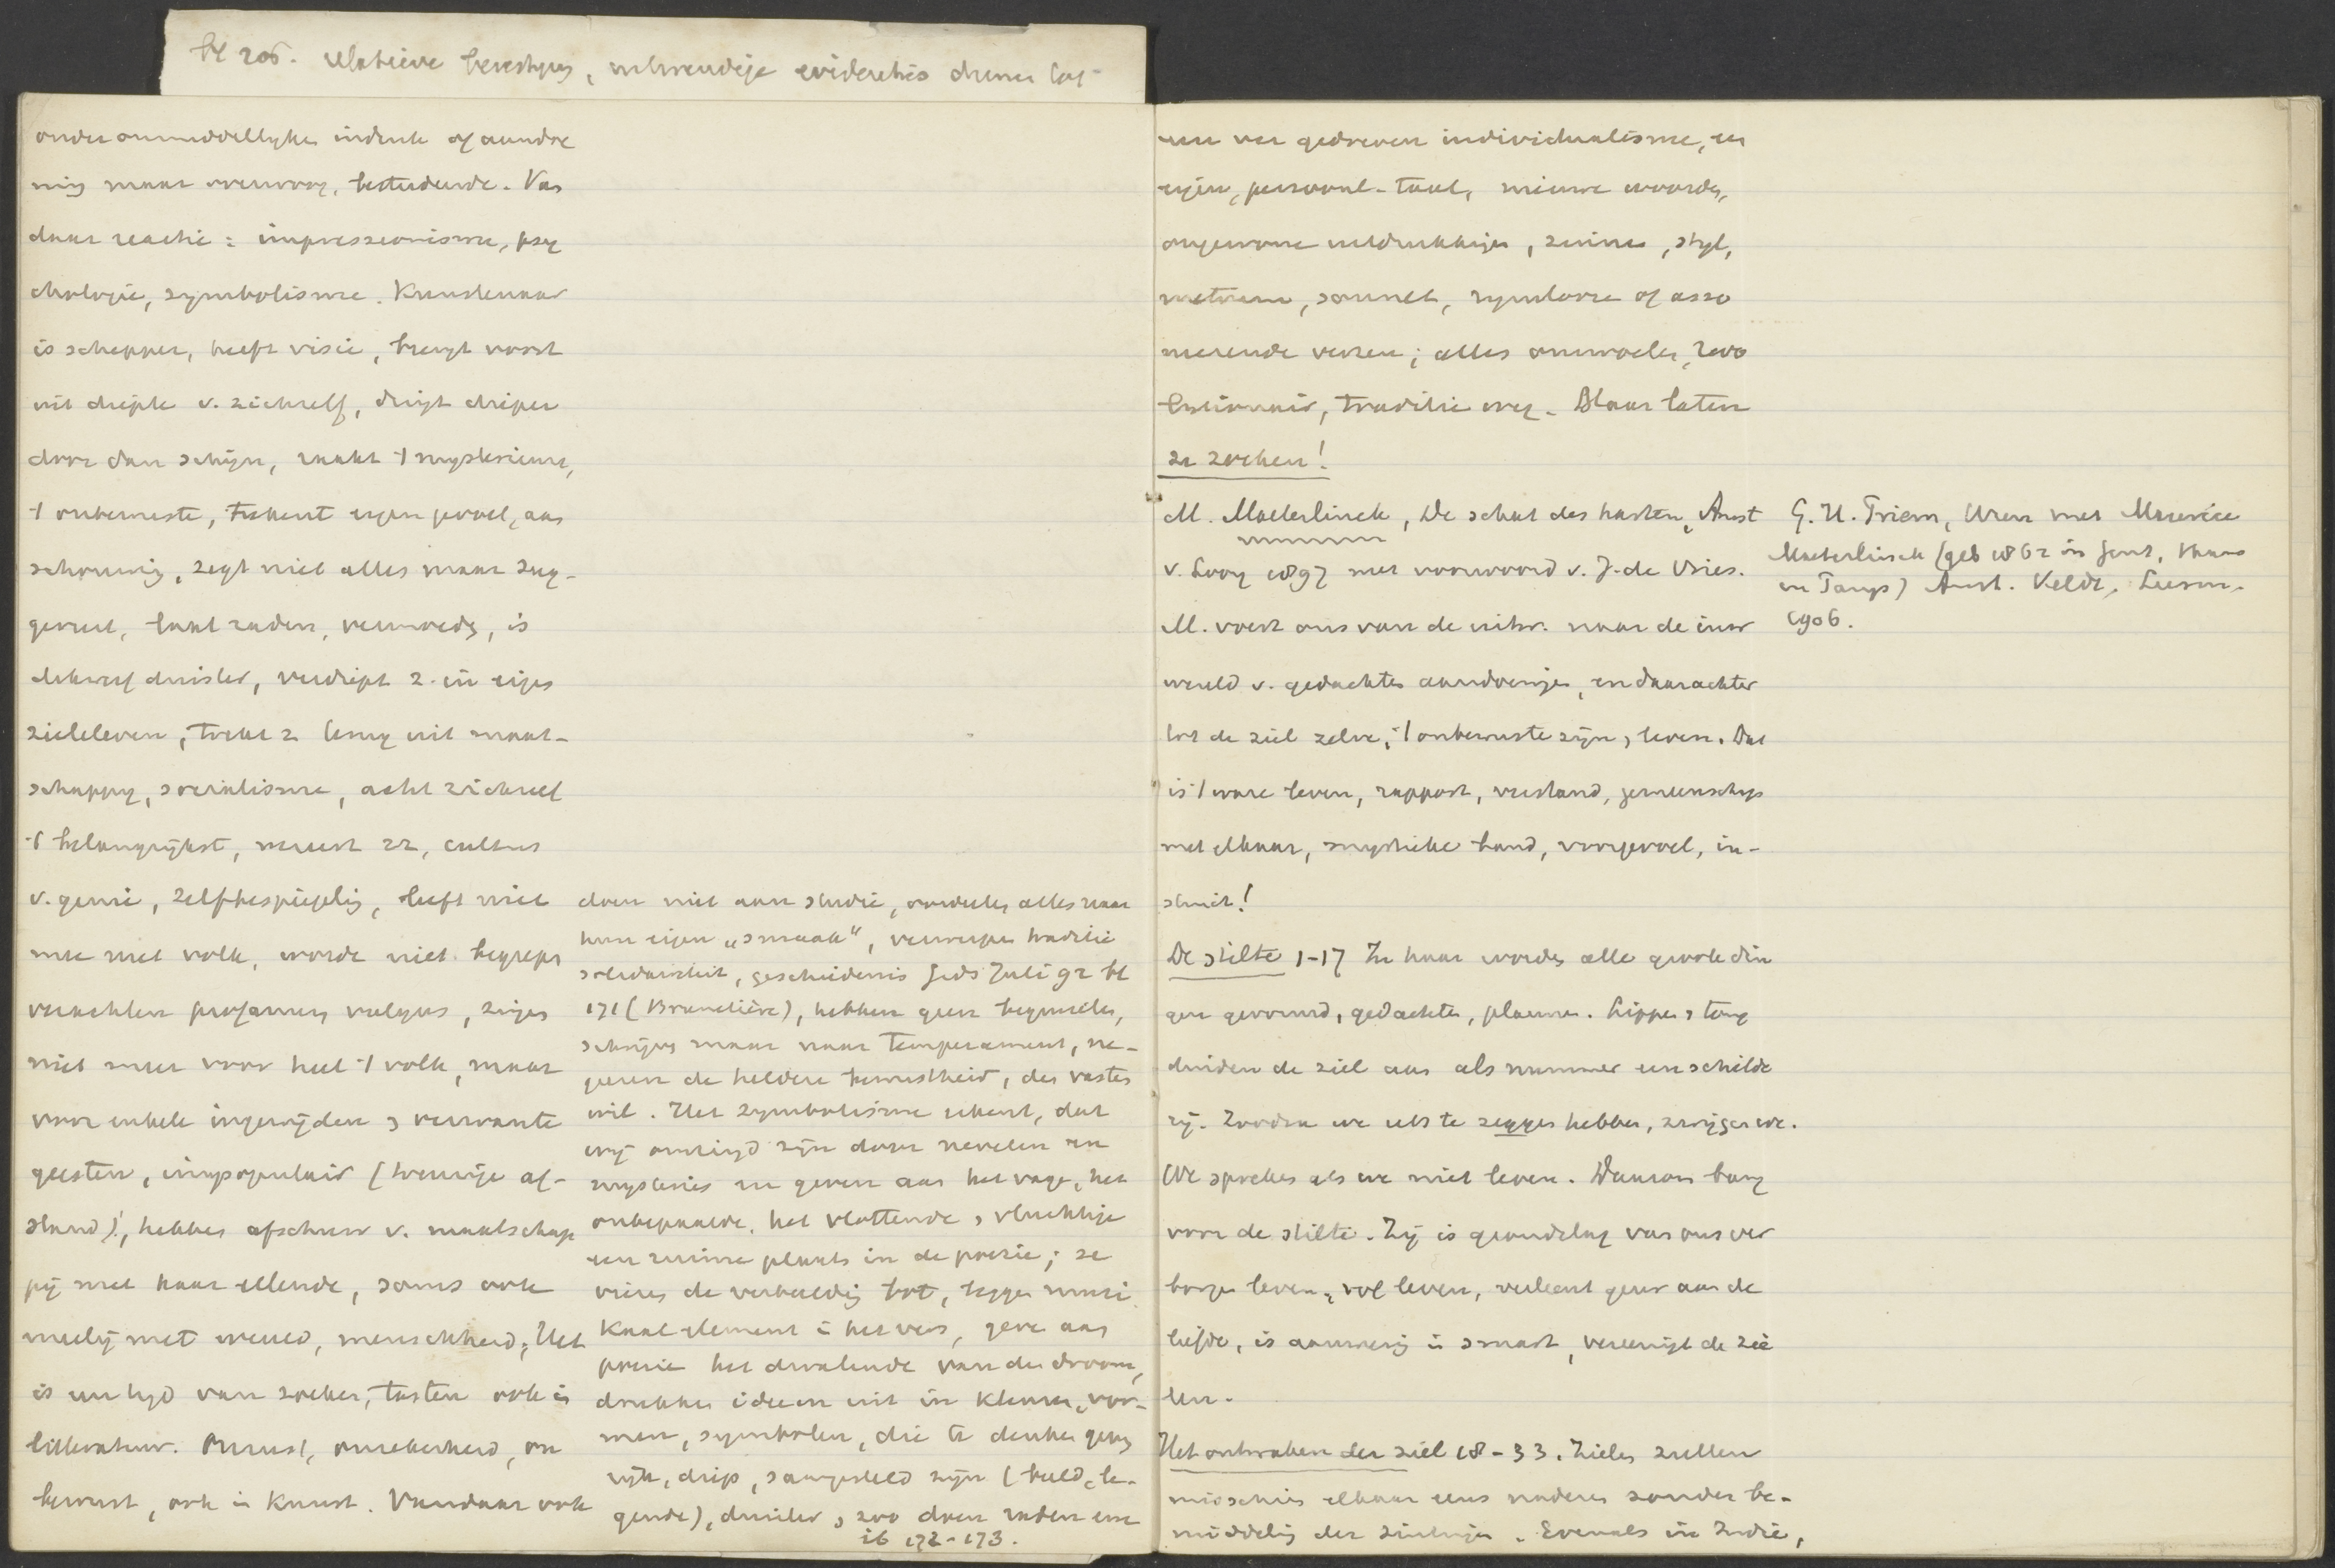 bl 205. relatieve
onder onmiddellyke indruk of aandoe
ning maar overwoog, bestudeerde. Van
daar reactie: impressionisme, psy
chologie, symbolisme. Kunstenaar
is schepper, heeft visie, brengt voort
uit diepte v. zichzelf, dringt dieper
door dan schijn, raakt 't mysterieuse,
't onbewuste, tekent eigen gevoel, aan
schouwing, zegt niet alles maar sug-
gereert, laat raden, vermoeden, is
dikwerf duister, verdiept z. in eigen
zieleleven, trekt z terug uit maat-
schappy, socialisme, acht zichzelf
't belangrijkst, vereert zz, cultus
v. genie, zelfbespiegeling, leeft niet
mee met volk, wordt niet begrepen
verachten profanum vulgus, zingen
niet meer voor heel 't volk, maar
voor enkele ingewijden & verwante
geesten, impopulair (treurige af-
stand)!, hebben afschuw v. maatschap
pij met haar ellende, soms ook
medelij met wereld, menschheid. Het
is een tijd van zoeken, tasten ook in
litteratuur. Onrust, onzekerheid, on
bewust, ook in Kunst. Vandaar ook
doen niet aan studie, oordeelen alles naar
hun eigen „smaak", verwerpen traditie
solidariteit, geschiedenis Gids Juli 92 bl
171 (Brunetière), hebben geen beginselen,
schrijven maar naar temperament, ne-
geeren de heldere bewustheid, den vasten
wil. Het symbolisme erkent, dat
wij omringd zijn door nevelen en
mysteries en geven aan het vage, het
onbepaalde, het vlottende & vluchtige
een ruime plaats in de poezie; ze
vieren de verbeelding bot, leggen muzi
kaal element in het vers, geven aan
poezie het dwalende van den droom,
drukken ideeen uit in kleuren, vor-
men, symbolen, die te denken geven
rijk, diep, saamgesteld zijn (beeld, le-
gende), duister, zoo doen raden enz
ib 172-173.
een ver gedreven individualisme, een
eigen, persoonl. taal, nieuwe woorden,
ongewone uitdrukkingen, zinnen, styl,
metrum, sonnet, rymlooze of asso
neerende verzen; alles onwoelen, revo
lutionair, traditie weg. Maar laten
ze zoeken!
M. Maeterlinck, De schat des harten, Amst
v. Looy 1897 met voorwoord v. J. de Vries.
M. voert ons van de uitw. naar de inw
wereld v. gedachten aandoeningen, en daarachter
tot de ziel zelve, 't onbewuste zijn & leven. Dat
is 't ware leven, rapport, verstand, gemeenschap
met elkaar, mystieke band, voorgevoel, in-
stinct!
De stilte 1-17 In haar worden alle groote din
gen gevormd, gedachten, plannen. Lippen & tong
duiden de ziel aan als nummer een schilde
rij. Zoodra we iets te zeggen hebben, zwijgen we.
We spreken als we niet leven. Daarom bang
voor de stilte. Zij is grondslag van ons ver
borgen leven, vol leven, verleent geur aan de
liefde, is aanwezig in smart, vereenigt de zie
len.
Het ontwaken der ziel 18-33. Zielen zullen
misschien elkaar eens naderen zonder be-
middeling der zintuigen. Evenals in Indie,
G. H. Priem, Uren met Maurice
Maeterlinck (geb 1862 in Gent, thans
in Parys) Amst. Veldt,
1906.